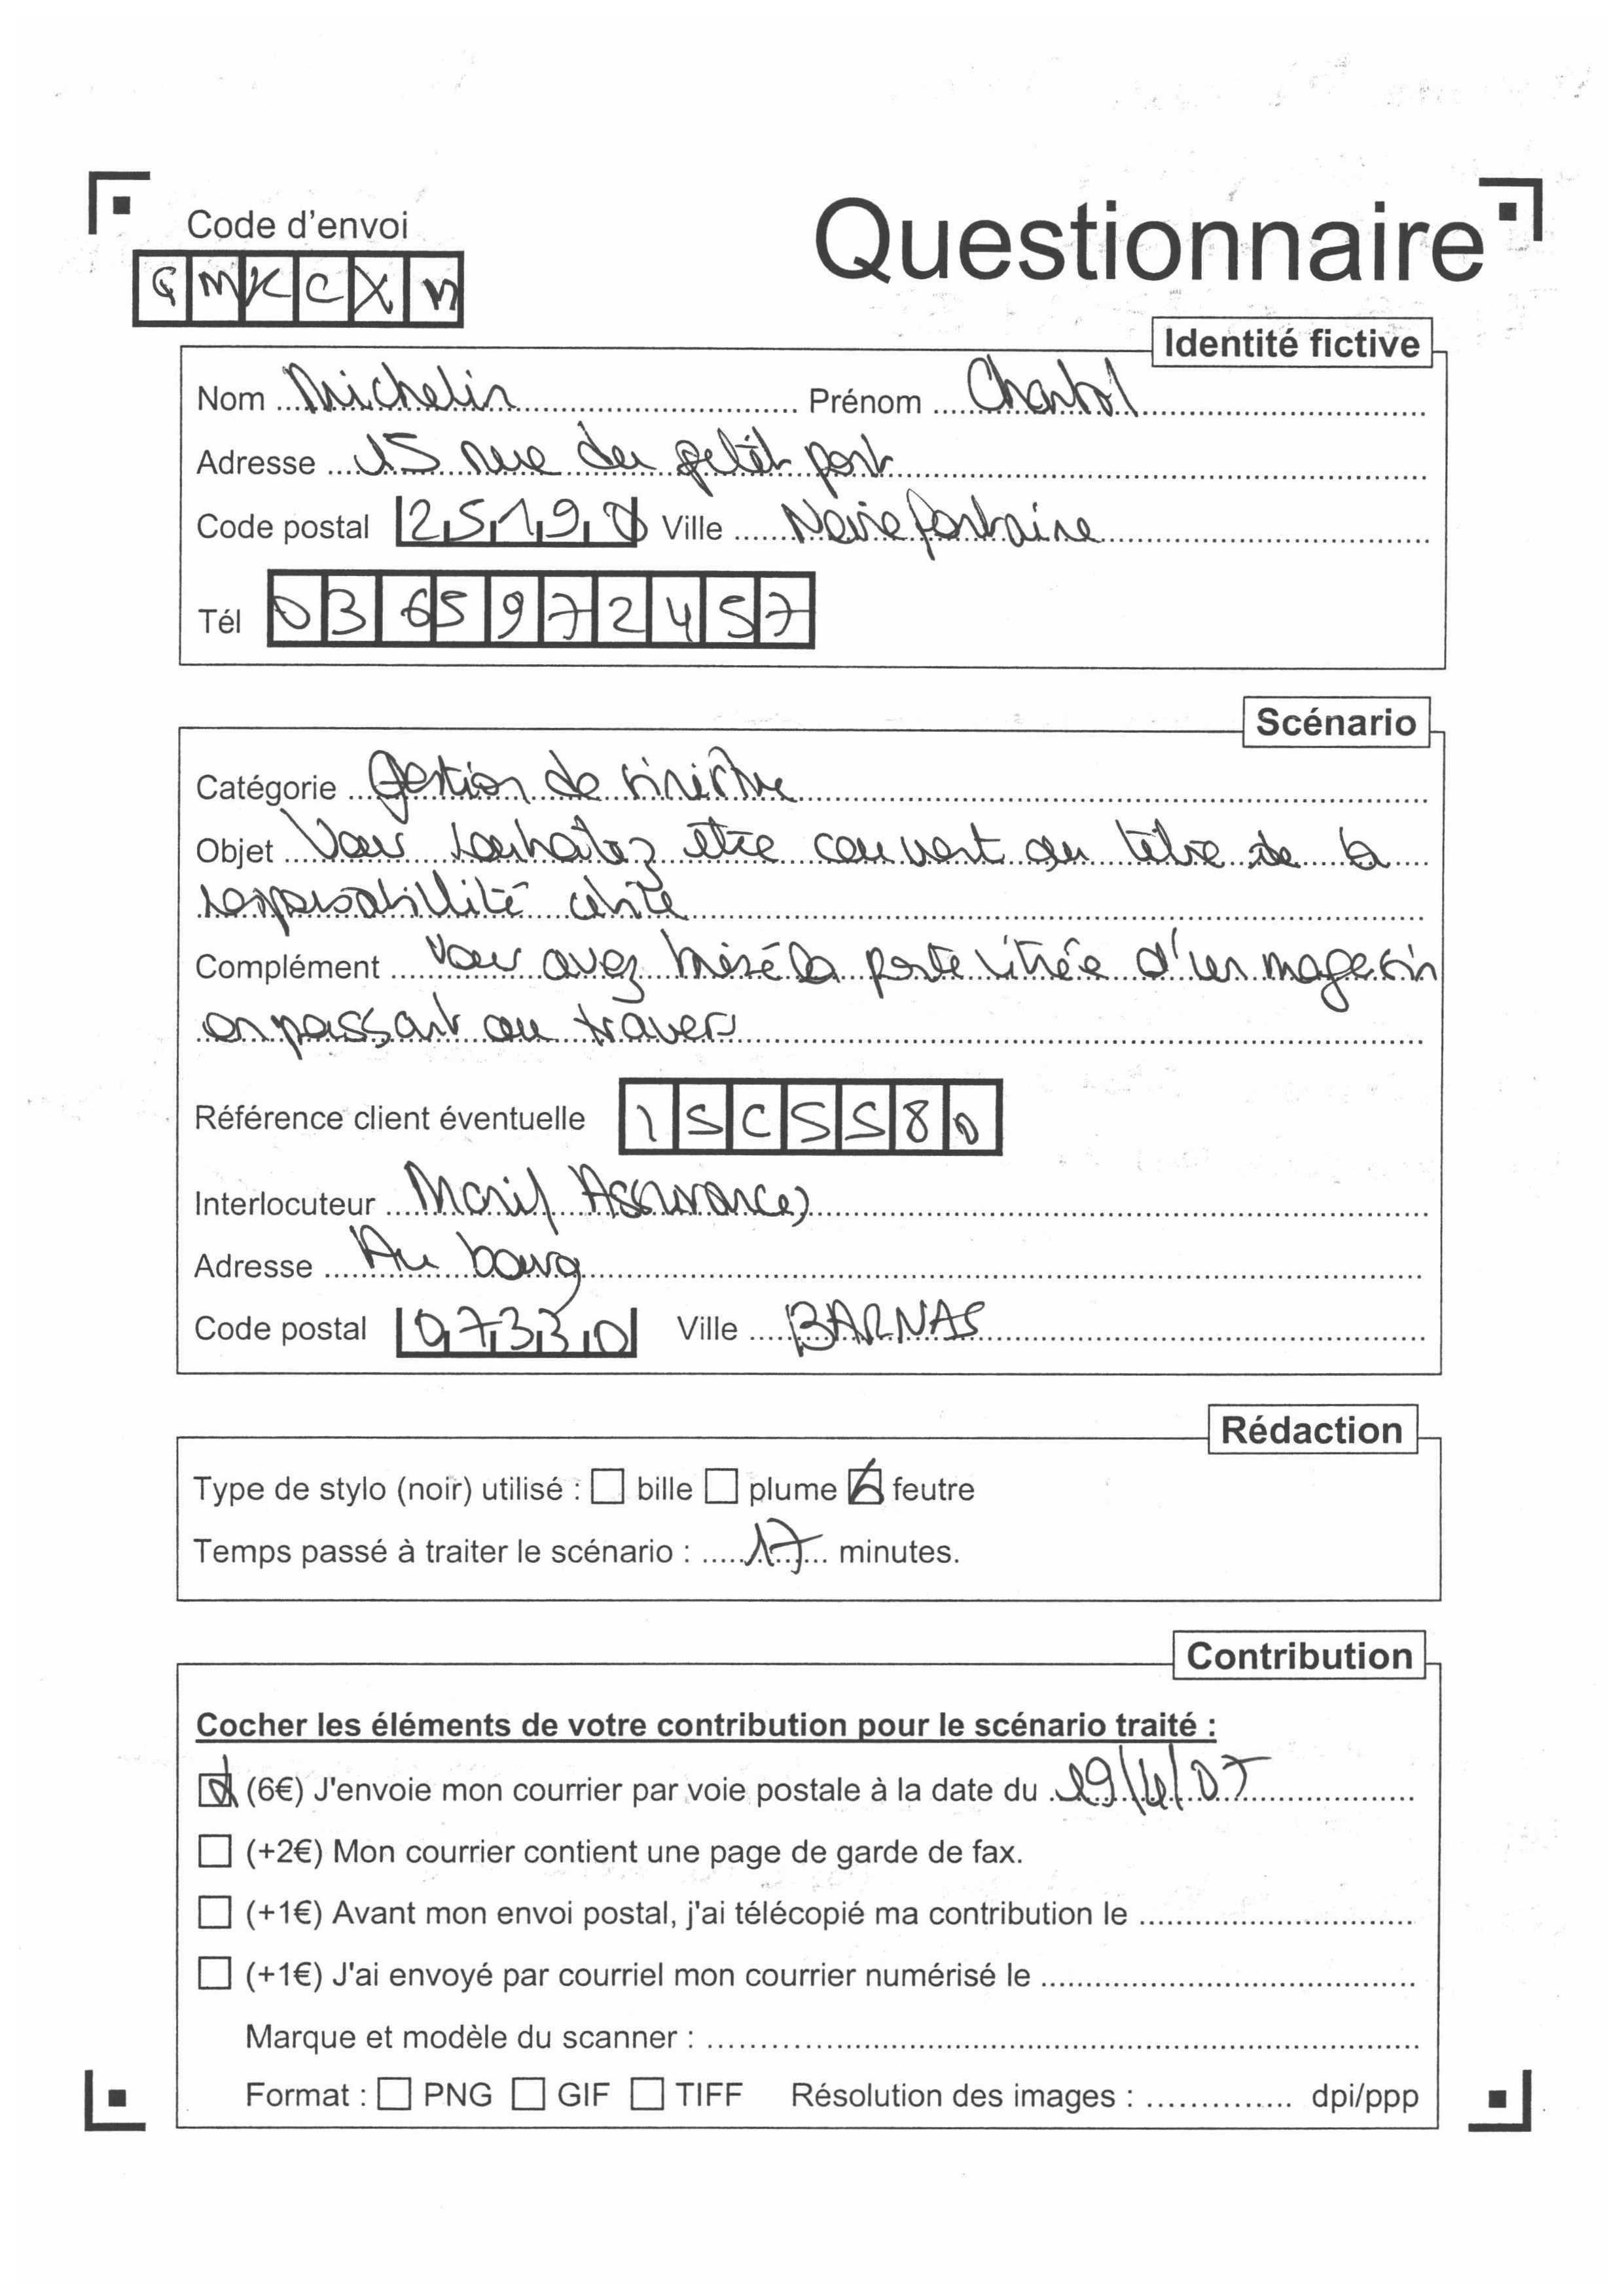 Code d'envoi
Questionnaire
GMKCXM
Identité fictive
Nom Michelin Prénom Chantal
Adresse 15 rue du petit port
Code postal 25190 Ville Noirefontaine
Tél 0365972457
Scénario
Catégorie Gestion de sinistre
Objet Vous souhaitez être couvert au titre de la
responsabillité civile
Complément Vous avez brisé la porte vitrée d'un magasin
en passant au travers
Référence client éventuelle ISCSS80
Interlocuteur Macif Assurances
Adresse Au bourg
Code postal 07330 Ville BARNAS
Rédaction
Type de stylo (noir) utilisé : bille plume feutre
Temps passé à traiter le scénario : 17 minutes.
Contribution
Cocher les éléments de votre contribution pour le scénario traité :
(6€) J'envoie mon courrier par voie postale à la date du 19/4/07
(+2€) Mon courrier contient une page de garde de fax.
(+1€) Avant mon envoi postal, j'ai télécopié ma contribution le
(+1€) J'ai envoyé par courriel mon courrier numérisé le
Marque et modèle du scanner :
Format : PNG GIF TIFF Résolution des images : dpi/ppp